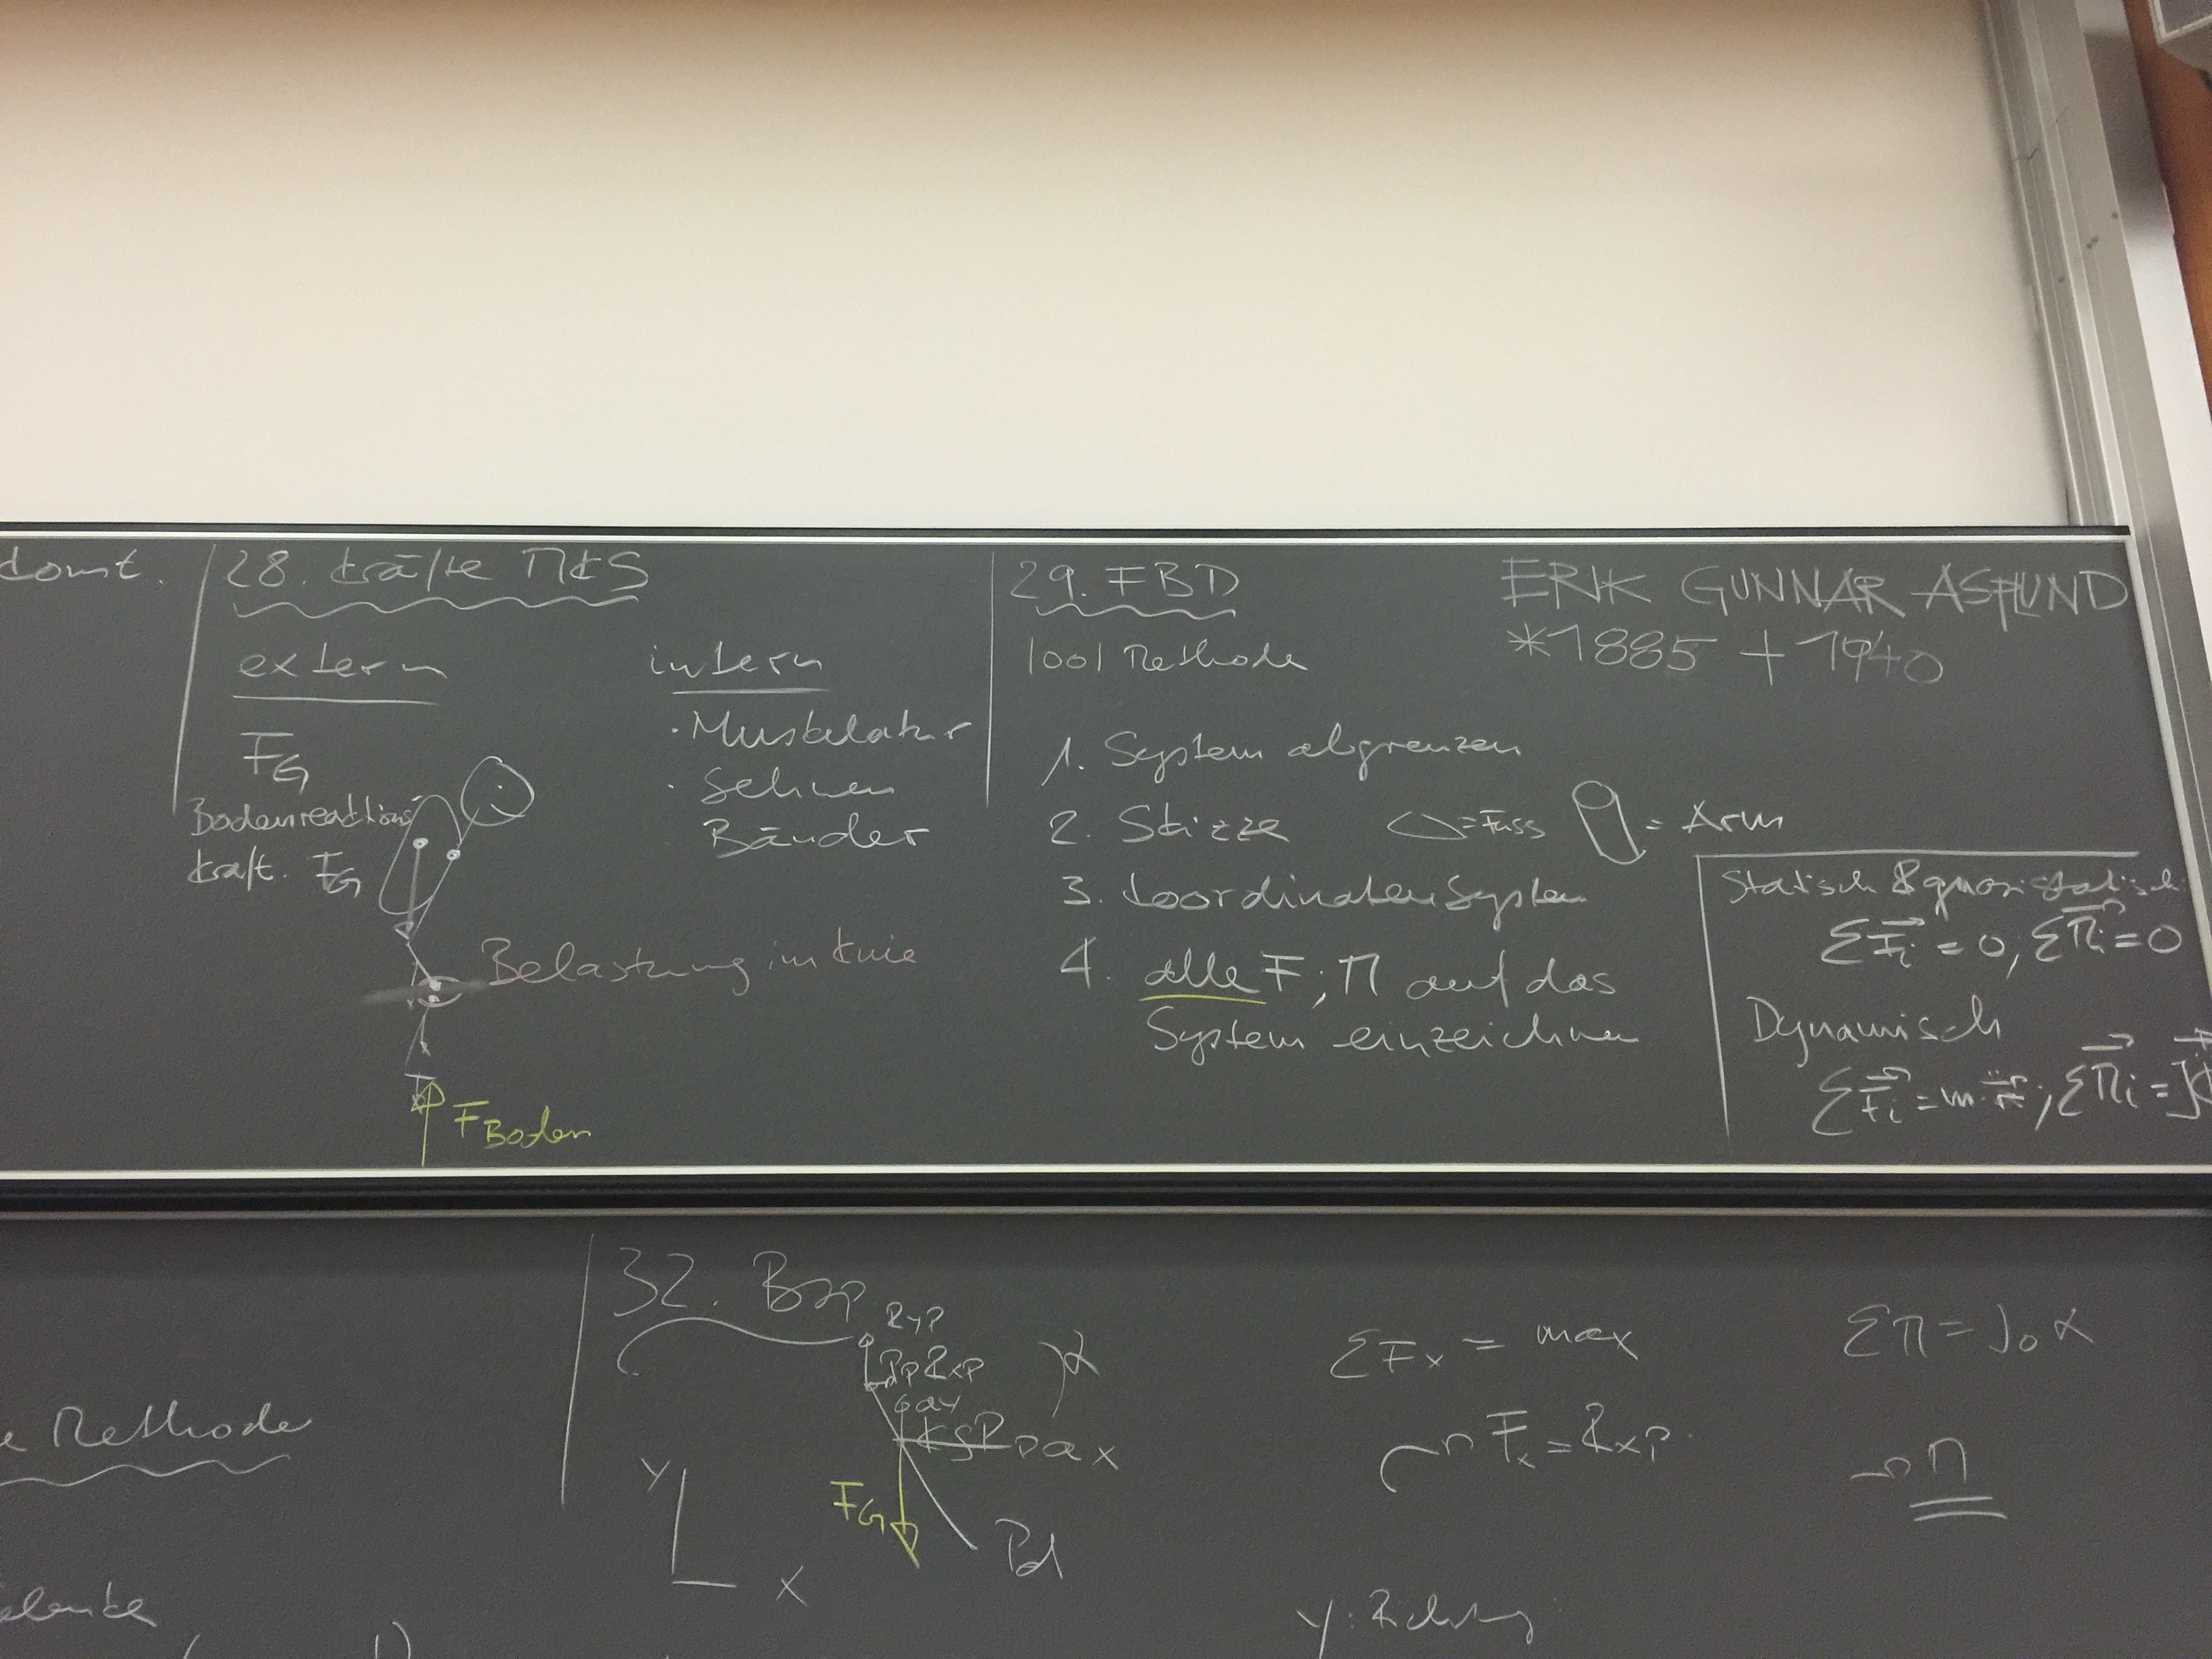 28. Kräfte MKS
extern
F_G
Bodenreaktions
kraft. F_G
intern
· Muskulatur
· Sehnen
Bänder
Belastung im Knie
F_Boden
29. FBD
1001 Methode
1. System abgrenzen
2. Skizze = Fuss = Arm
3. Koordinatensystem
4. alle F; M auf das
System einzeichnen
ERIK GUNNAR ASPLUND
*1885 +1940
Statisch & quasistatisch
ΣF⃗i = 0; ΣM⃗i = 0
Dynamisch
ΣF⃗i = m·r⃗̈; ΣM⃗i =
Methode
elenke
32. Bsp
Ryp
Pp Rxp
α
ay
KSP ax
F_G
Pd
y
x
ΣFx = max
→ Fx = Rxp
y: Richtung
ΣM = J₀α
→ M